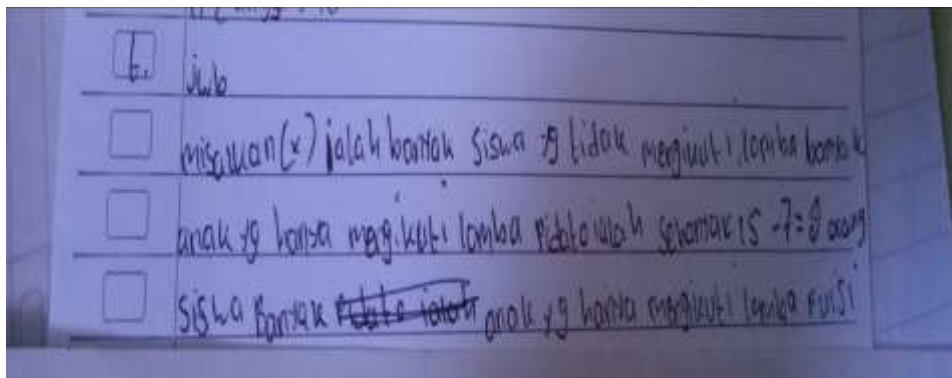 t. jwb
misalkan (x) ialah banyak siswa yg tidak mengikuti lomba banyak
anak yg hanya megikuti lomba pidato ialah sebanyak 15 - 7 = 8 orang
siswa banyak anak yg hanya mengikuti lomba puisi